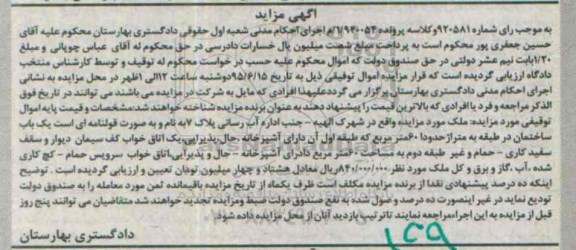 آگهی مزاید
به موجب رای شماره ۹۲۰۵۸۱وکلاسه پرونده ۷/۹۴۰۰۵۴/ اجرای احکام مدنی شعبه اول حقوقی دادگستری بهارستان محکوم علیه آقای
حسین جعفری پور محکوم است به پرداخت مبلغ شصت میلیون یال خسارات دادرسی در حق محکوم له آقای عباس چوپانی و مبلغ
۱/۲۰۰بابت نیم عشر دولتی در حق صندوق دولت که اموال محکوم علیه حسب در خواست محکوم له توقیف و توسط کارشناس منتخب
دادگاه ارزیابی گردیده است که قرار مزایده اموال توقیفی ذیل به تاریخ ۹۵/۶/۱۵دوشنبه ساعت ۱۲الی ۱ظهر در محل مزایده به نشانی
اجرای احکام مدنی دادگستری بهارستان برگزار می گرددعلیهذا افرادی که مایل به شرکت در مزایده می باشند می توانند در تاریخ فوق
الذکر مراجعه و فرد یاافرادی که بالاترین قیمت را پیشنهاد دهند به عنوان برنده مزایده شناخته خواهند شد:مشخصات و قیمت پایه اموال
توقیفی مورد مزایده: ملک مورد مزایده واقع در شهرک الهیه – جنب اداره آب رسانی پلاک ۷به نام و به صورت قولنامه ای است یک باب
ساختمان در طبقه به متراژحدودا ۶۰متر مربع که طبقه اول آن دارای آشپزخانه ،حال،پذیرایی،یک اتاق خواب کف سیمان دیوار و سقف
سفید کاری – حمام و غیر طبقه دوم به مساحت ۶۰متر مربع دادرای آشپزخانه – حال و پذیرایی،اتاق خواب سرویس حمام – کچ کاری
شده ،آب ،گاز و برق و کل ملک مورد نظر ۸۴۰/۰۰۰/۰۰۰ریال معادل هشتاد و چهار میلیون تومان تعیین و ارزیابی گردیده است . توضیح
اینکه ده درصد پیشنهادی نقدا از برنده مزایده مکلف است ظرف یکماه از تاریخ مزایده باقیمانده ثمن مورد معامله را به صندوق دولت
تودیع نماید در غیر اینصورت ده درصد و صول شده به نفع صندوق دولت ضبط ومزایده تجدید خواهند شد متقاضیان می توانند پنج روز
قبل از مزایده به این اجراءمراجعه نمایند تاترتیب بازدید آنان از محل مزایده داده شود
دادگستری بهارستان